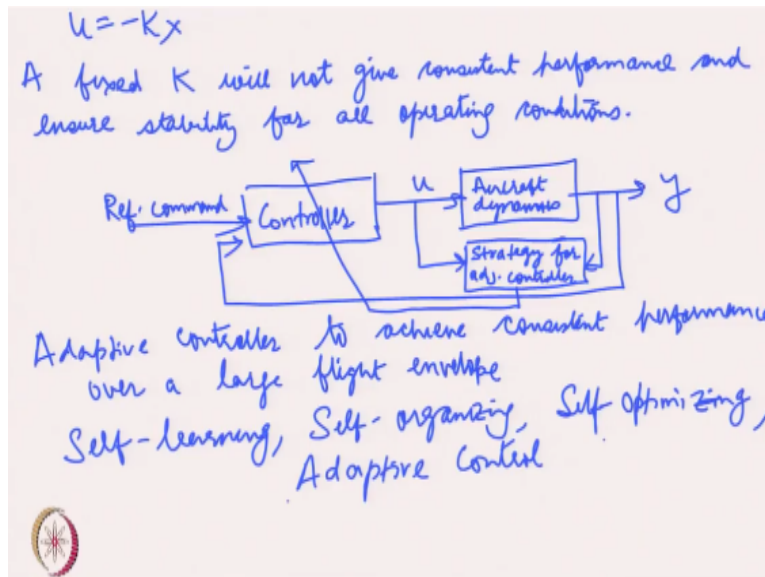 u = -Kx
A fixed K will not give consistent performance and
ensure stability for all operating conditions.
Ref. command
Controller
u
Aircraft
dynamics
y
Strategy for
adj. controller
Adaptive controller to achieve consistent performance
over a large flight envelope
Self-learning, Self-organizing, Self optimizing,
Adaptive Control